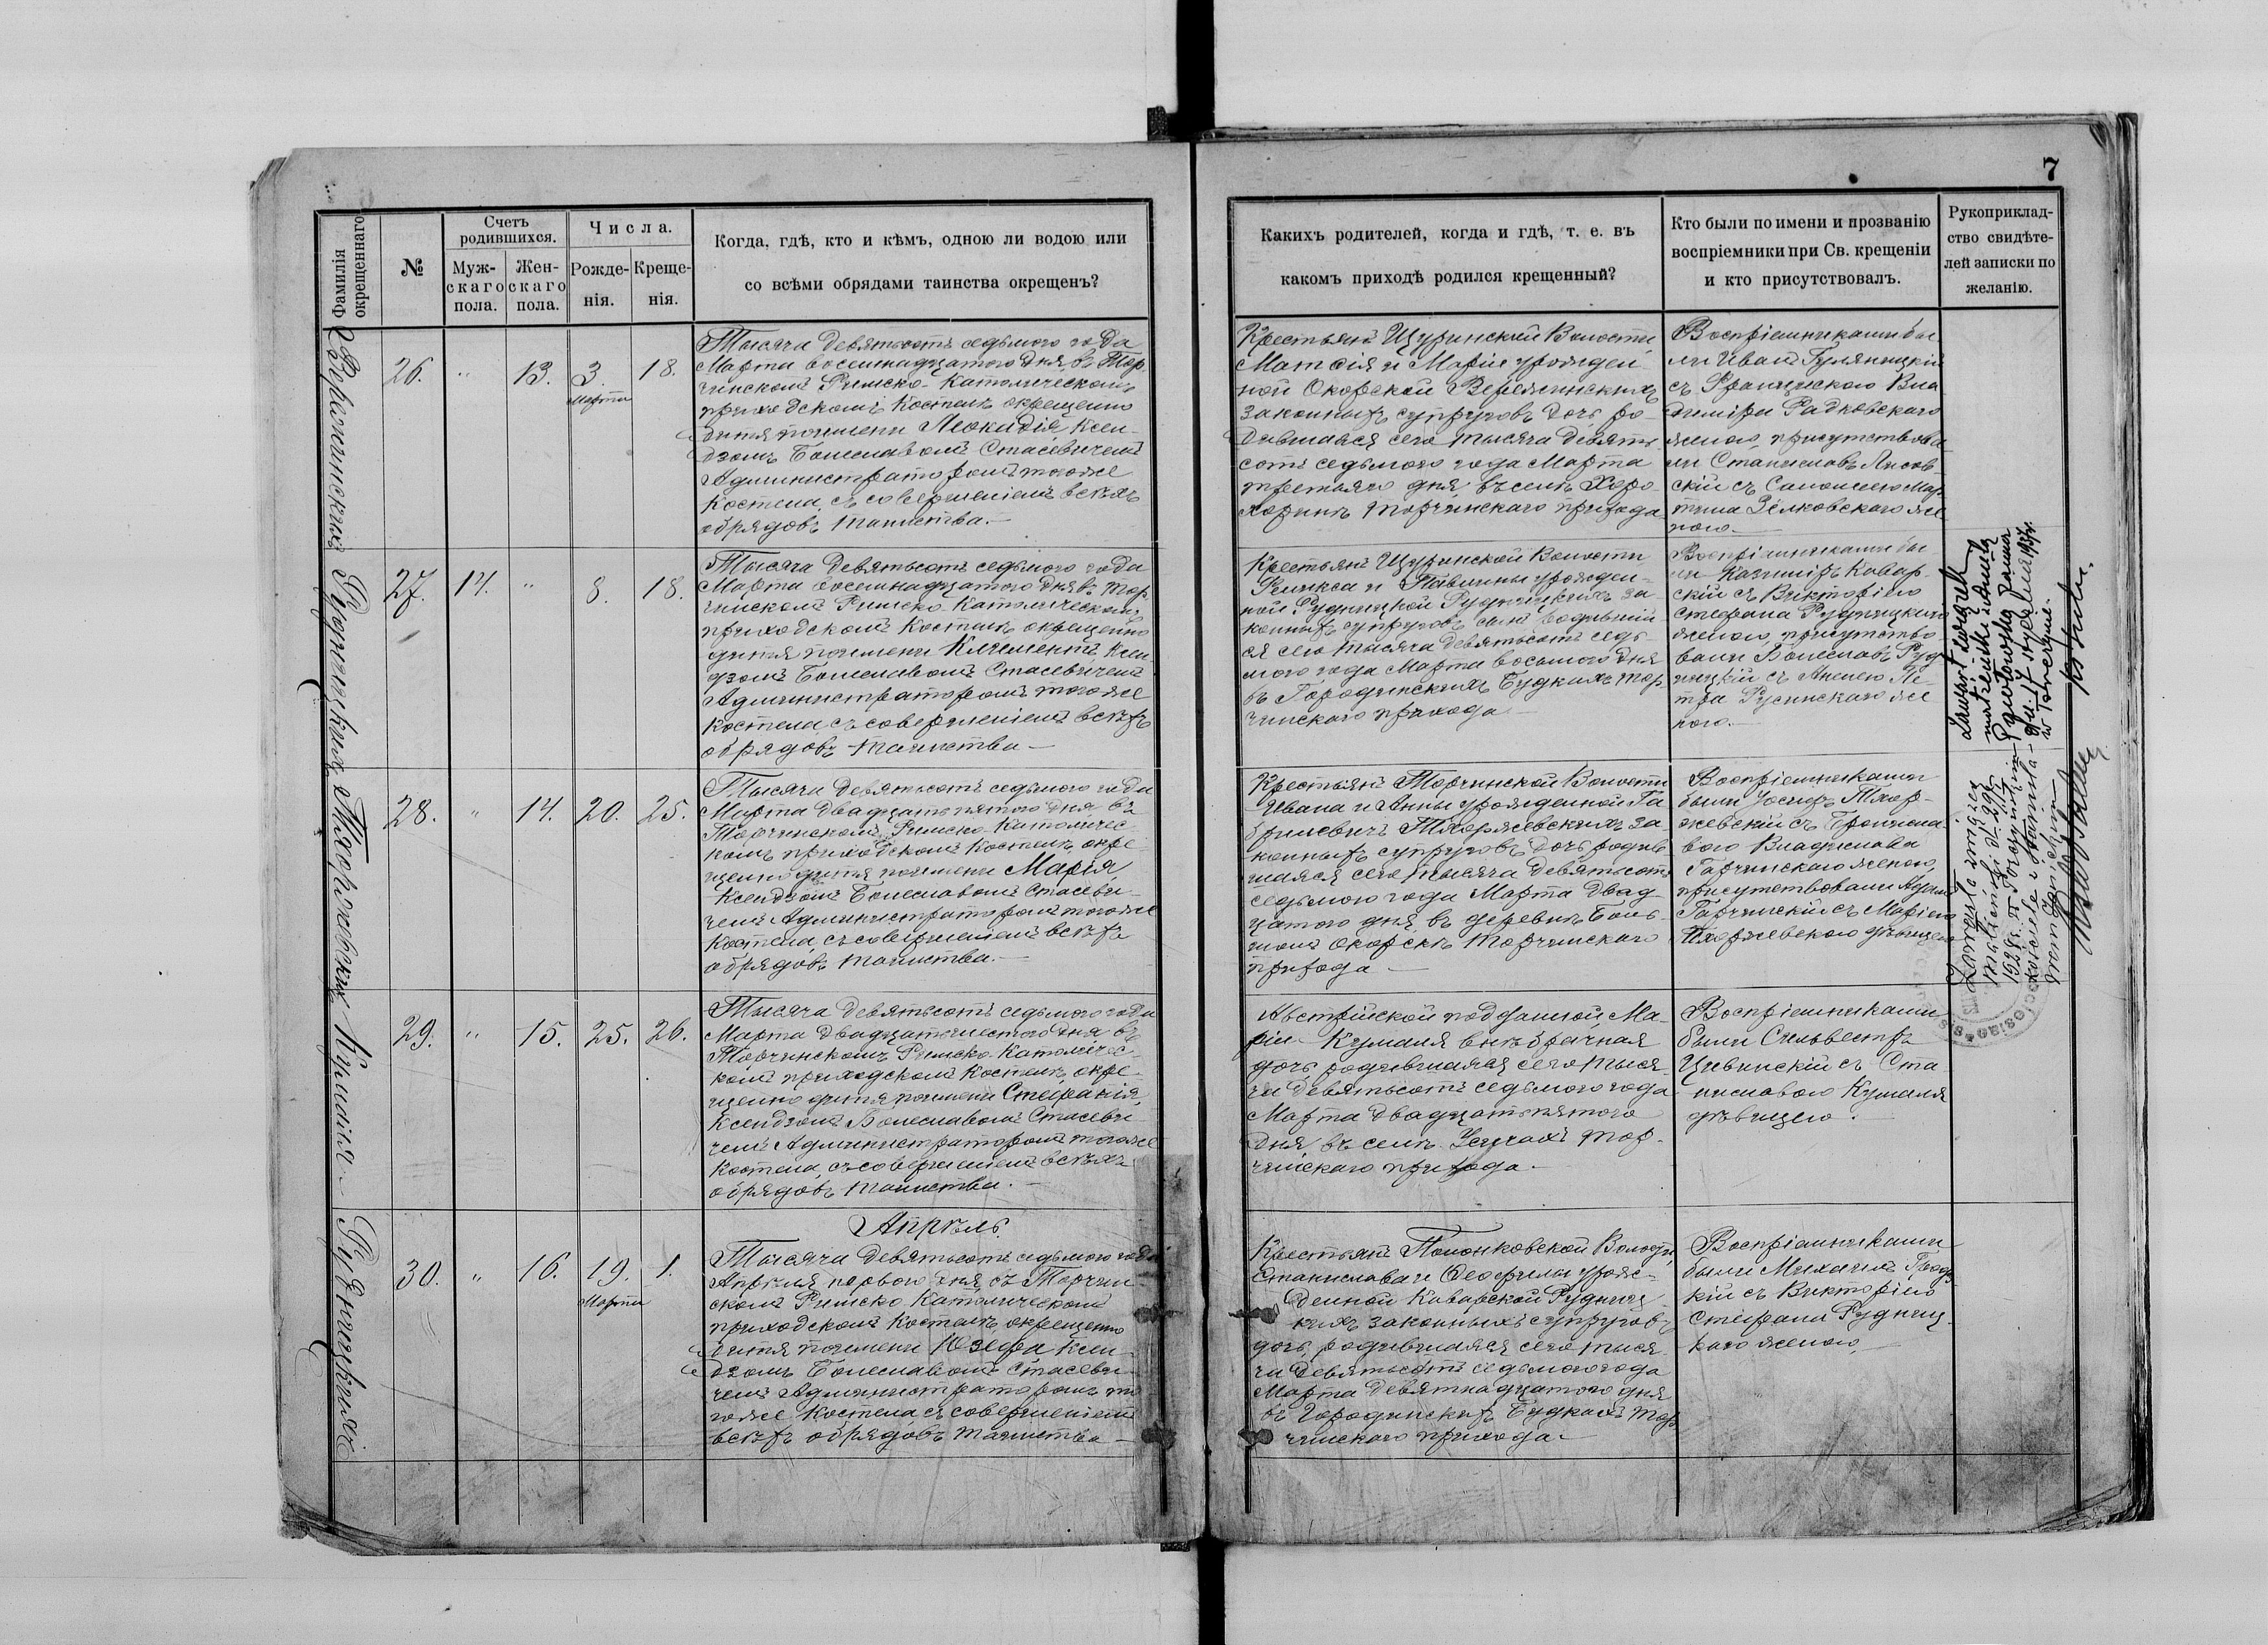 7
Фамилія
окрещеннаго
№
Счетъ
родившихся.
Муж-
скаго
пола.
Жен-
скаго
пола.
Числа.
Рожде-
нія.
Креще-
нія.
Когда, гдѣ, кто и кѣмъ, одною ли водою или
со всѣми обрядами таинства окрещенъ?
Какихъ родителей, когда и гдѣ, т. е. въ
какомъ приходѣ родился крещенный?
Кто были по имени и прозванію
воспріемники при Св. крещеніи
и кто присутствовалъ.
Рукоприклад-
ство свидѣте-
лей записки по
желанію.
26.
"
13.
3.
Марта
18.
Тысяча девятьсотъ седьмого года
Марта восемнадцатого дня, въ Тор-
чинскомъ Римско-Католическомъ
приходскомъ Костелѣ окрещено
дитя по имени Леокадія, Ксен-
дзомъ Болеславомъ Стасевичемъ
Администраторомъ того же
Костела, съ совершеніемъ всѣхъ
обрядовъ таинства.—
Крестьянъ Щуринской Волости
Матѳія и Маріи урожден-
ной Окорской
законныхъ супруговъ дочь, ро-
дившаяся сего тысяча девять-
сотъ седьмого года Марта
третьяго дня, въ селѣ Хоро-
хоринѣ Торчинского прихода
Воспріемниками бы-
ли Иванъ Гуляницкій
съ Францишкою Вла-
диміра Радковскаго
женою, присутствова-
ли Станиславъ Лисов-
скій съ Саломеею Мар-
тина Зелковского же-
ною.—
Рудницкихъ
27.
14.
"
8.
18.
Тысяча девятьсотъ седьмого года
Марта восемнадцатого дня въ Тор-
чинскомъ Римско-Католическомъ
приходскомъ Костелѣ окрещено
дитя по имени Климентъ Ксен-
дзомъ Болеславомъ Стасевичемъ
Администраторомъ того же
Костела, съ совершеніемъ всѣхъ
обрядовъ таинства—
Крестьянъ Щуринской Волости
Феликса и Павлины урожден-
ной Рудницкой Рудницкихъ за-
конныхъ супруговъ сынъ родившій-
ся сего тысяча девятьсотъ седь-
мого года Марта восьмого дня
въ Городинскихъ Будкахъ Тор-
чинского прихода—
Воспріемниками бы-
ли Казимиръ Кавар-
скій съ Викторіею
Стефана Рудницкого
женою, присутство-
вали Болеславъ Руд-
ницкій съ Анелею Пе-
тра Русинского же-
ною.—
28.
"
14.
20.
25.
Тысяча девятьсотъ седьмого года
Марта двадцать пятого дня, въ
Торчинскомъ Римско-Католичес-
комъ приходскомъ Костелѣ окре-
щено дитя по имени Марія,
Ксендзомъ Болеславомъ Стасеви-
чемъ Администраторомъ того же
Костела, съ совершеніемъ всѣхъ
обрядовъ таинства.—
Крестьянъ Торчинской Волости
Ивана и Анны урожденной Га-
брилевичъ Тхоржевскихъ за-
конныхъ супруговъ дочь, родив-
шаяся сего тысяча девятьсотъ
седьмого года Марта двад-
цатого дня, въ деревнѣ Боль-
шомъ Окорскѣ Торчинского
прихода—
Воспріемниками
были Іосифъ Тхор-
жевскій съ Бронисла-
вою Владислава
Гарчинского женою,
присутствовали Адамъ
Гарчинскій съ Маріею
Тхоржевскою дѣвицею
29.
"
15.
25.
26.
Тысяча девятьсотъ седьмого года
Марта двадцать шестого дня въ
Торчинскомъ Римско-Католичес-
комъ приходскомъ Костелѣ, окре-
щено дитя по имени Стефанія,
Ксендзомъ Болеславомъ Стасеви-
чемъ Администраторомъ того же
Костела, съ совершеніемъ всѣхъ
обрядовъ таинства.—
Австрійской подданной Ма-
ріи Кумаля внѣбрачная
дочь, родившаяся сего тыся-
ча девятьсотъ седьмого года
Марта двадцать пятого
дня, въ селѣ Усичахъ Тор-
чинскаго прихода.—
Воспріемниками
были Сильвестръ
Цивинскій съ Ста-
ниславою Кумаля
дѣвицею.
Рудницкихъ
30.
"
16.
19.
Марта
1.
Апрѣль
Тысяча девятьсотъ седьмого года
Апрѣля первого дня, въ Торчин-
скомъ Римско-Католическомъ
приходскомъ Костелѣ окрещено
дитя по имени Юзефа, Ксен-
дзомъ Болеславомъ Стасеви-
чемъ Администраторомъ то-
гоже Костела съ совершеніемъ
всѣхъ обрядовъ таинства—
Крестьянъ Полонковской Волости,
Станислава и Ѳеофили урож-
денной Каварской Рудниц-
кихъ законныхъ супруговъ
дочь, родившаяся сего тыся-
ча девятьсотъ седьмого года
Марта девятнадцатого дня
въ Городинскихъ Будкахъ Тор-
чинскаго прихода.—
Воспріемниками
были Михаилъ Гродз-
кій съ Викторіею
Стефана Рудниц-
кого женою,—